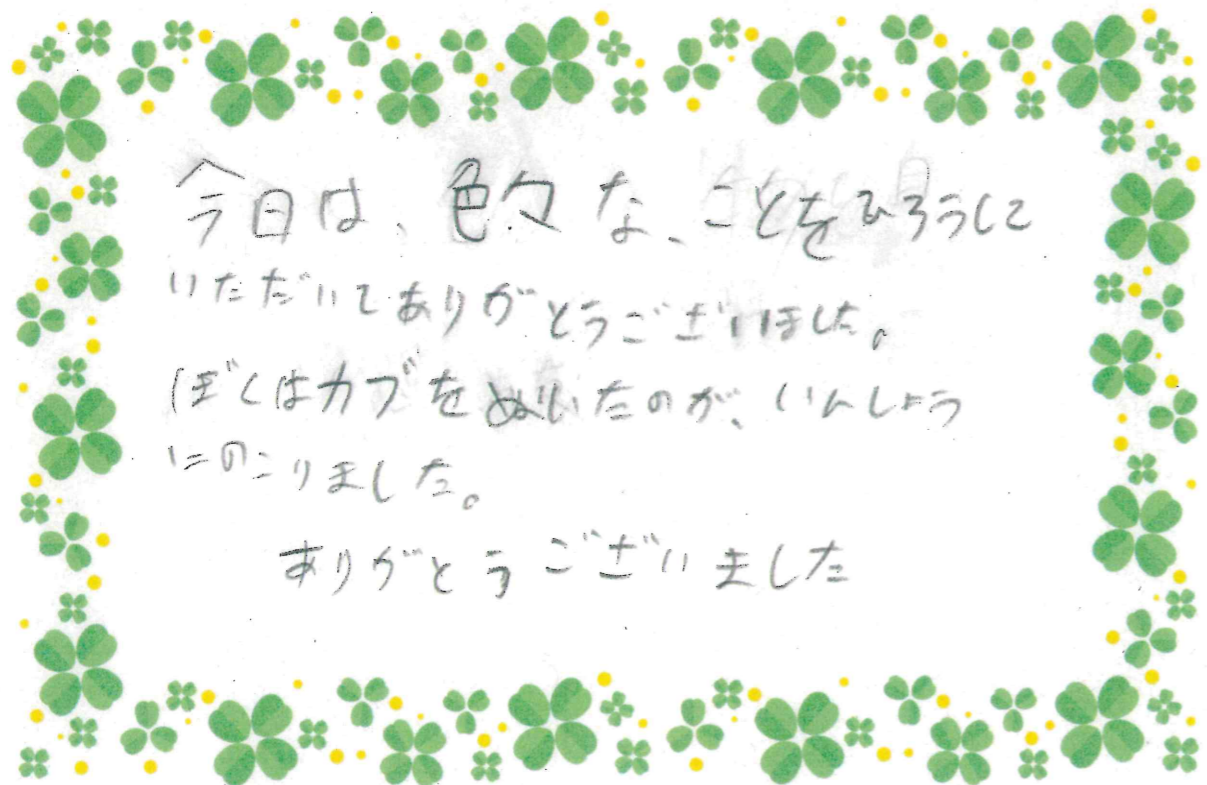 今日は、色々な、ことをひろうして
いただいてありがとうございました。
ぼくはカブをぬいたのが、いんしょう
にのこりました。
ありがとうございました